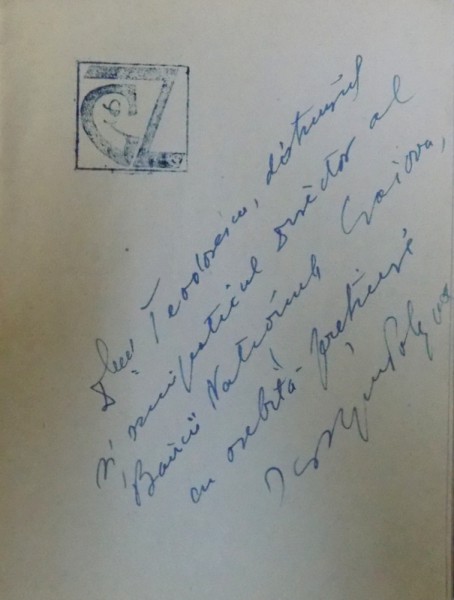 D-lui Teodorescu, distinsul
și simpaticul director al
Băncii Naționale, Craiova,
cu osebită prețuire